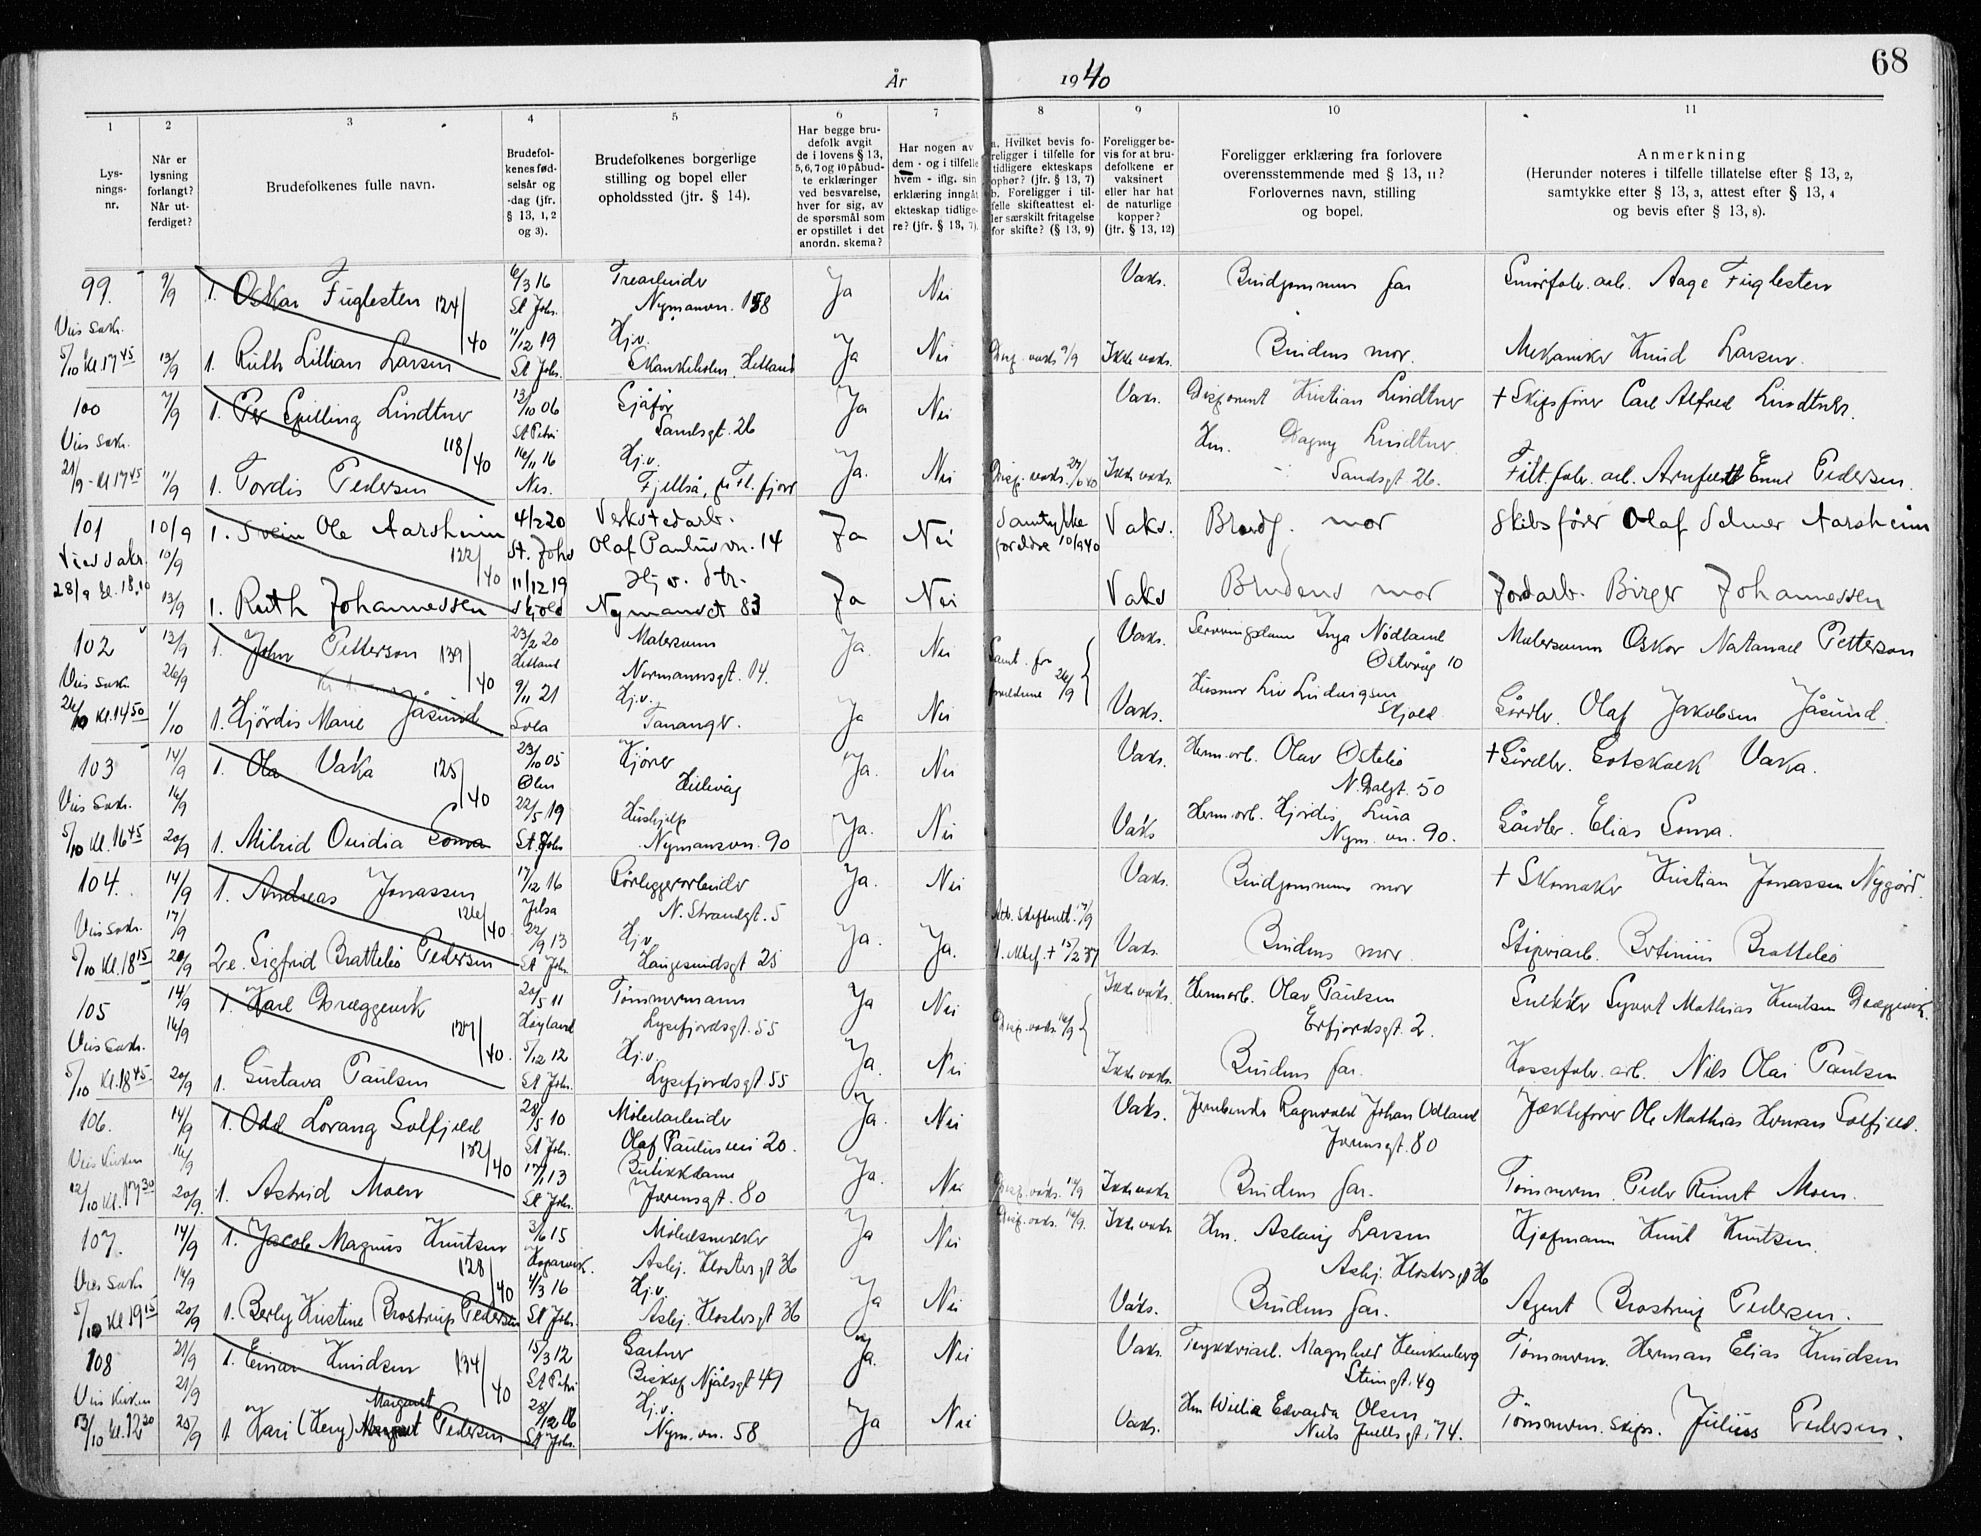 68
År 1940
1 2 3 4 5 6 7 8 9 10 11
Lys-
nings-
nr.
Når er
lysning
forlangt?
Når ut-
ferdiget?
Brudefolkenes fulle navn.
Brudefol-
kenes fød-
selsår og
-dag (jfr.
§ 13, 1, 2
og 3).
Brudefolkenes borgerlige
stilling og bopel eller
opholdssted (jtr. § 14).
Har begge bru-
defolk avgit
de i lovens § 13,
5, 6, 7 og 10 påbud-
te erklæringer
ved besvarelse,
hver for sig, av
de spørsmål som
er opstillet i det
anordn. skema?
Har nogen av
dem - og i tilfelle
hvem - iflg. sin
erklæring inngåt
ekteskap tidlige-
re? (jfr. § 13, 7).
a. Hvilket bevis fo-
religger i tilfelle for
tidligere ekteskaps
ophør? (jfr. § 13, 7)
b. Foreligger i til-
felle skifteattest el-
ler særskilt fritagelse
for skifte? (§ 13, 9)
Foreligger be-
vis for at bru-
defolkene er
vaksinert
eller har hat
de naturlige
kopper?
(jfr. § 13, 12)
Foreligger erklæring fra forlovere
overensstemmende med § 13, 11?
Forlovernes navn, stilling
og bopel.
Anmerkning
(Herunder noteres i tilfelle tillatelse efter § 13, 2,
samtykke efter § 13, 3, attest efter § 13, 4
og bevis efter § 13, 8).
99. 9/9 1. Oskar Fuglesten 124/40 6/3 16 St Joh. Trearbeider Nymansvn. 158 Ja Nei Vaks. Brudgommens far Smørfabr. arb. Aage Fuglesten
Vies Sakr. 5/10 Kl. 17 45 13/9 1. Ruth Lillian Larsen 11/12 19 St Joh. Hj.v. Skankeholen, Hetland Ja Nei Disp. vaks 9/9 Ikke vaks. Brudens mor. Mekaniker Knud Larsen.
100 7/9 1. Per Spilling Lindtner 118/40 13/10 06 St Petri Sjåfør Sandsgt. 26 Ja Nei Vaks. Disponent Kristian Lindtner + Skipsfører Carl Alfred Lindtner.
Hm. Dagny Lindtner
Vies Sakr. 21/9 - Kl 17 45 11/9 1. Tordis Pedersen 16/11 16 Nes. Hj.v. Fjellså, pr Fl. fjord Ja. Nei Disp. vaks. 24/6 40 Ikke vaks. Sandsgt 26. Filt.fabr. arb. Arnfeldt Emil Pedersen.
101 10/9 1. Svein Ole Aarsheim 122/40 4/2 20 St. Johs Verkstedarb. Olaf Paulus vn. 14 Ja Nei Samtykke foreldre 10/9 40 Vaks. Brudg. mor Skibsfører Olaf Selmer Aarsheim
Vies Sakr. 10/9
28/9 kl. 18.10 13/9 1. Ruth Johannessen 11/12 19 Skjold Hj v. Str. Nymansvt 83 Ja Nei Vaks Brudens mor Jordarb. Birger Johannessen
102 12/9 1. John Petterson 139/40 23/2 20 Hetland Malersvenn Normannsgt. 14. Ja. Nei Samt. fra foreldrene 26/9 Vaks. Serveringsdame Inga Nødland Østervåg 10 Malersvenn Oskar Natanael Petterson
Vies Sakr. 26/9
26/10 Kl. 14 50 1/10 1. Hjørdis Marie Jåsund 9/11 21 Sola Hj.v. Tananger. Ja Nei Vaks. Husmor Liv Ludvigsen Skjold Gårdbr. Olaf Jakobsen Jåsund.
103 14/9 1. Ola Vaka 125/40 23/10 05 Ølen Kjører Hillevåg Ja. Nei Vaks. Herm. arb. Olav Østebø N. Dalgt. 50 + Gårdbr. Gotskalk Vaka.
Vies Sakr. 16/9
5/10 Kl. 16 45 20/9 1. Milrid Ovidia Soma 22/5 19 St. Joh Hushjelp Nymansvn. 90 Ja. Nei Vaks Herm. arb. Hjørdis Lura Nym. vn. 90. Gårdbr. Elias Soma.
104. 14/9 1. Andreas Jonassen 126/40. 17/12 16 Jelsa Rørleggerarbeider N. Strandgt. 5 Ja. Nei Vaks. Brudgommens mor + Skomaker Kristian Jonassen Nygård.
Vies Sakr. 17/9
5/10 Kl. 18 15 20/9 2e. Sigfrid Brattebø Pedersen 22/9 13 St Joh. Hj.v. Haugesundsgt 25 Ja. Ja. Vaks. Brudens mor. Brattebø
105 14/9 1. Karl Dreggevik 127/40. 20/5 11 Høyland Tømmermann Lysefjordsgt. 55 Ja Nei Disp. vaks. 16/9 Ikke vaks. Herm arb. Olav Paulsen Erfjordsgt. 2. Snekker Syvert Mathias Knutsen Dreggevik.
Vies Sakr. 16/9
5/10 Kl. 18 45 20/9 1. Gustava Paulsen 5/12 12 St Joh. Hj.v. Lysefjordsgt 55 Ja. Nei Ikke vaks. Brudens far. Kassefabr. arb. Nils Olai Paulsen
106. 14/9 1. Odd Lorang Solfjeld 132/40 28/5 10 St Joh. Målerarbeider Olaf Paulus vei 20. Ja. Nei Vaks. Jernbinder Ragnvald Johan Odland Jærensgt. 80 Jæktefører Ole Mathias Herman Solfjeld.
Vies Kirken 16/9
12/10 Kl. 17 30 20/9. 1. Astrid Moen 17/1 13 St Joh. Butikkdame Jærensgt. 80 Ja. Nei Disp. vaks. 14/9 Ikke vaks. Brudens far. Tømmerm. Peder Reinert Moen.
107. 14/9 1. Jacob Magnus Knutsen 128/40 3/6 15 Kopervik. Ja Nei Disp. vaks. 16/9. Ikke vaks. Hm. Aslaug Larsen Asbj. Klostersgt 36 Kjøpmann Knut Knutsen.
Asbj. Klostersgt 36
Vies Sakr. 16/9
5/10 Kl 19 15 20/9 1. Berly Kristine Brostrup Pedersen 4/3 16 St Joh. Hj.v. Asbj. Klostersgt 36 Ja Nei Vaks. Brudens far. Agent Brostrup Pedersen.
108 21/9 1. Einar Knudsen 134/40 15/3 12 St Petri Gartner Biskop Njålsgt 49 Ja. Nei Vaks. Trykkeriarb. Magnhild Steingt. 49 Tømmerm. Herman Elias Knudsen
Vies Kirken 21/9 Margaret
13/10 kl. 12 20 25/9 1. Kari (Keny) Pedersen 28/12 16 St Joh. Hj.v. Nym. vn. 58 Ja Nei Vaks. Hm Willia Edvarda Olsen Niels Juells gt. 74. Tømmerm. skips. Julius Pedersen.